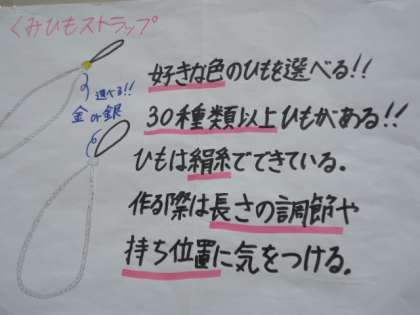 くみひもストラップ
好きな色のひもを選べる!!
選べる!!
金or銀
30種類以上ひもがある!!
ひもは絹糸でできている。
作る際は長さの調節や
持ち位置に気をつける。